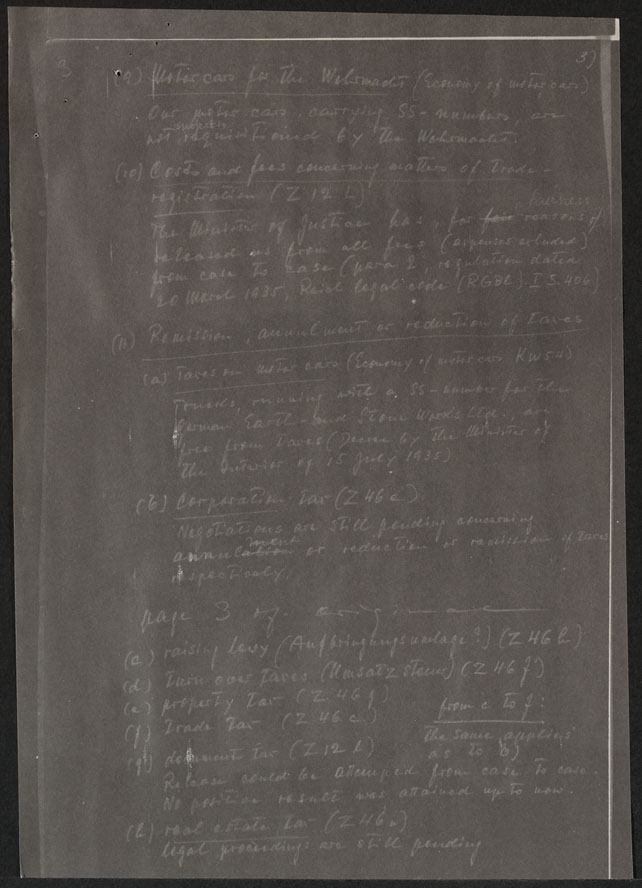 3
3)
(9) Motor cars for the Wehrmacht (Economy of motor cars)
Our motor cars, carrying SS-numbers, are
not requisitioned by the Wehrmacht.
(10) Costs and fees concerning matters of trade-
registration (Z 12 L)
business
The Minister of Justice has, for fair reasons of
released us from all fees (expenses excluded)
from case to case (para 2, regulation dated
20 March 1935, Reich legal code (RGBl) I S. 406)
(11) Remission, annulment or reduction of taxes
(a) Taxes on motor cars (Economy of motor cars KW 54)
running with a SS-number for the
German Earth- and Stone Works Ltd., are
free from taxes (Decree by the Minister of
the Interior of 15 July 1935)
(b) Corporation tax (Z 46 c)
Negotiations are still pending concerning
ment
annulation or reduction or remission of taxes
respectively.
page 3 of original
(c) raising levy (Aufbringungsumlage?) (Z 46 h)
(d) turn over taxes (Umsatzsteuer) (Z 46 f)
(e) property tax (Z 46 g)
from c to f:
(f) trade tax (Z 46 e)
the same applies
as to b)
(g) document tax (Z 12 L)
Release could be attemped from case to case.
No positive result was attained up to now.
(h) real estate tax (Z 46 n)
legal proceedings are still pending